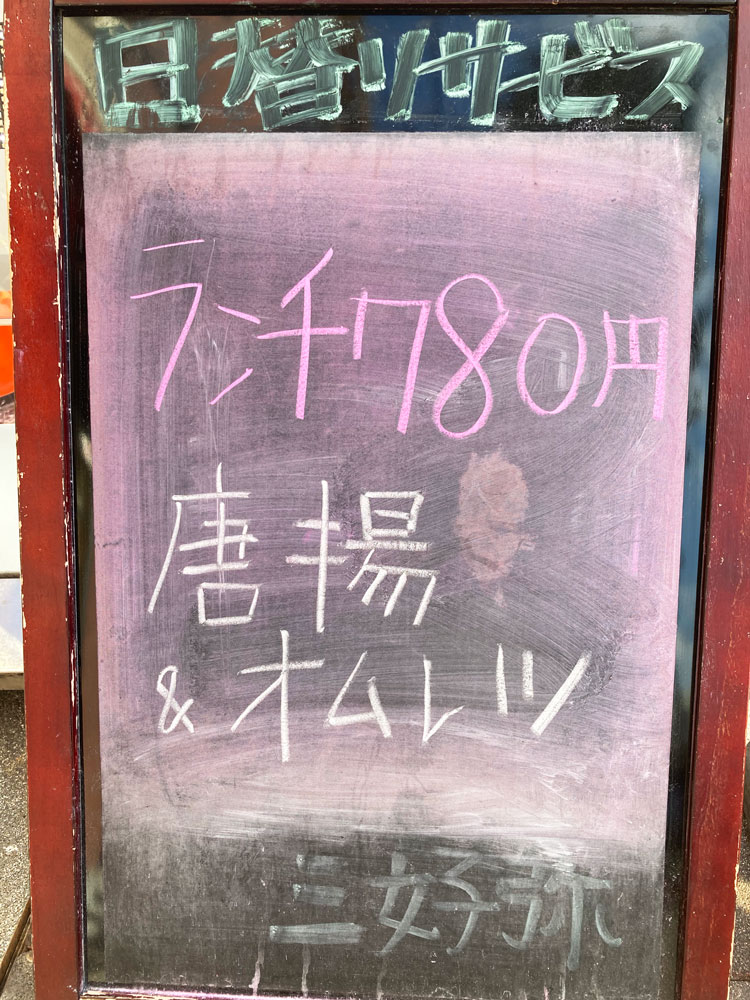 日替りサービス
ランチ780円
唐揚
&オムレツ
三好弥